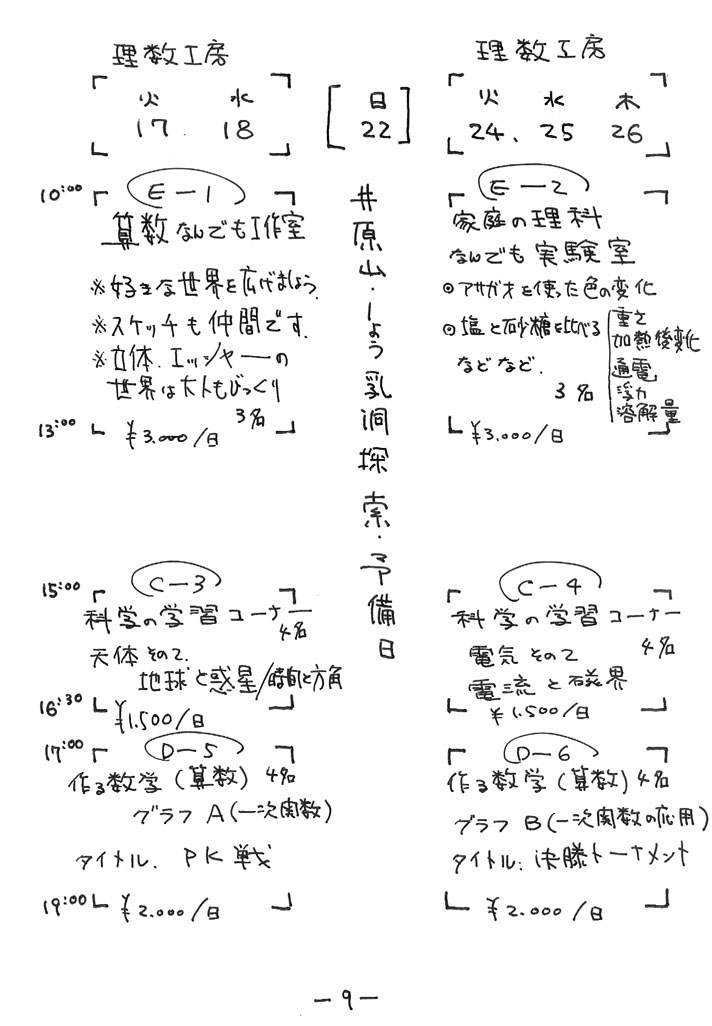 理数工房
火 水
17. 18
10:00
E-1
算数なんでも工作室
※好きな世界を広げましょう.
※スケッチも仲間です.
※立体.エッシャーの
世界は大人もびっくり
3名
13:00
¥3.000/日
15:00
C-3
科学の学習コーナー
4名
天体その2.
地球と惑星/時間と方角
16:30
¥1.500/日
17:00
D-5
作る数学(算数) 4名
グラフA(一次関数)
タイトル. PK戦
19:00
¥2.000/日
日
22
井原山・しょう乳洞探索・予備日
理数工房
火 水 木
24、25 26
E-2
家庭の理科
なんでも実験室
◎アサガオを使った色の変化
◎塩と砂糖を比べる
重さ
加熱後変化
通電
浮力
溶解量
などなど.
3名
¥3.000/日
C-4
科学の学習コーナー
電気その2
4名
電流と磁界
¥1.500/日
D-6
作る数学(算数) 4名
グラフB(一次関数の応用)
タイトル:決勝トーナメント
¥2.000/日
-9-